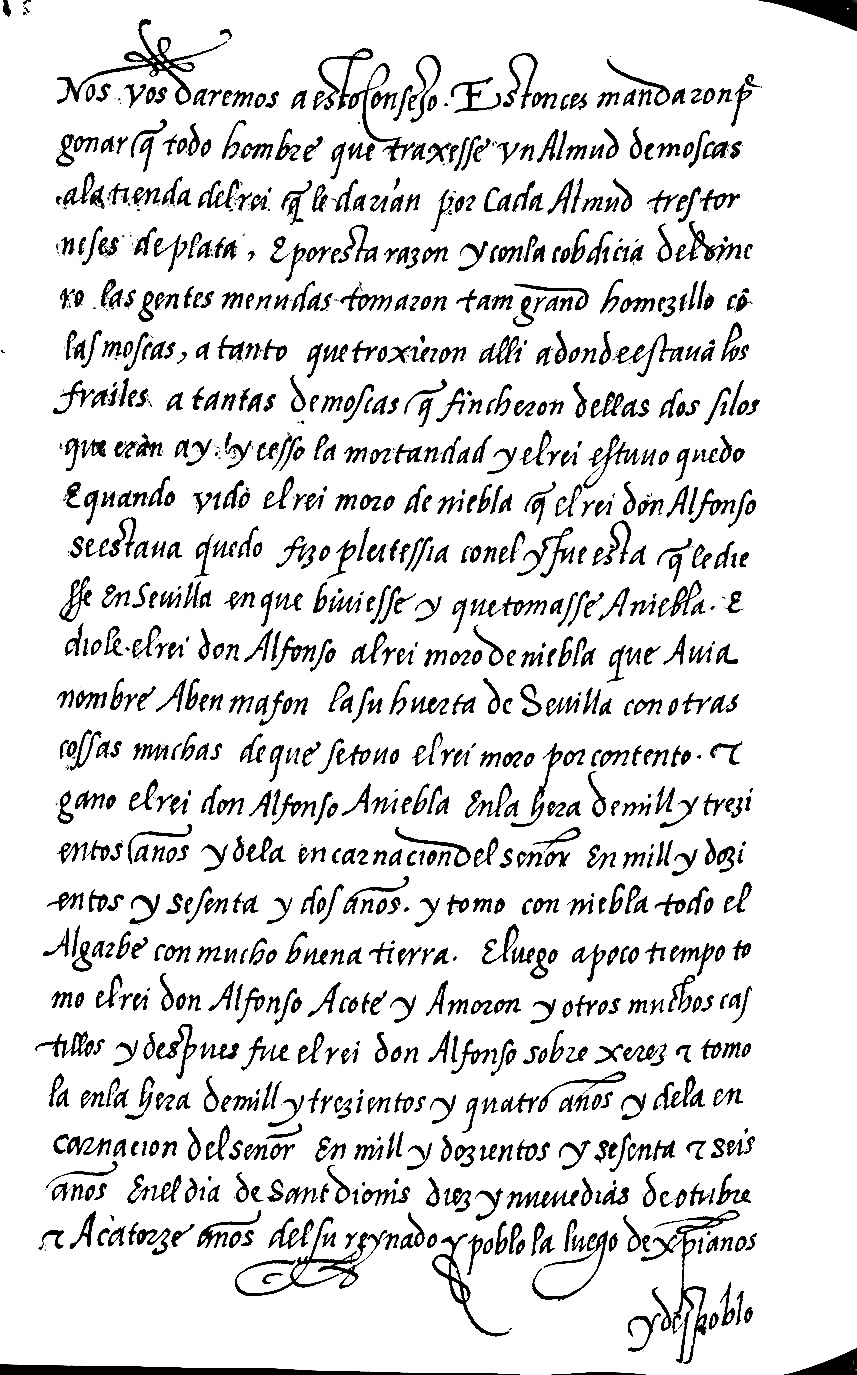 Nos vos daremos a esto Consejo. Estonces mandaron p̄
gonar q̄ todo hombre que traxesse vn Almud de moscas
ala tienda del rei q̄ le darian por Cada Almud tres tor
neses de plata, E por esta razon y con la cobdicia del dine
ro las gentes menudas tomaron tam grand homezillo cō
las moscas, a tanto que troxieron alli adonde estauā los
frailes a tantas de moscas q̄ fincheron dellas dos silos
que eran ay y cesso la mortandad y el rei estuuo quedo
E quando vido el rei moro de niebla q̄ el rei don Alfonso
se estaua quedo fizo pleitessia con el y fue esta q̄ le die
sse En Sevilla en que biuiesse y que tomasse A niebla. E
diole el rei don Alfonso al rei moro de niebla que Auia
nombre Aben mafon la su huerta de Sevilla con otras
cossas muchas de que se touo el rei moro por contento. ⁊
gano el rei don Alfonso A niebla En la hera de mill y trezi
entos años y de la encarnacion del señor En mill y dozi
entos y sesenta y dos años. y tomo con niebla todo el
Algarbe con mucho buena tierra. E luego a poco tiempo to
mo el rei don Alfonso A cote y A moron y otros muchos cas
tillos y despues fue el rei don Alfonso sobre xerez ⁊ tomo
la en la hera de mill y trezientos y quatro años y de la en
carnacion del señor En mill y dozientos y sesenta ⁊ seis
años En el dia de Sant dionis diez y nueue dias de otubre
⁊ A catorze años del su reynado y poblo la luego de xp̄ianos
y despoblo